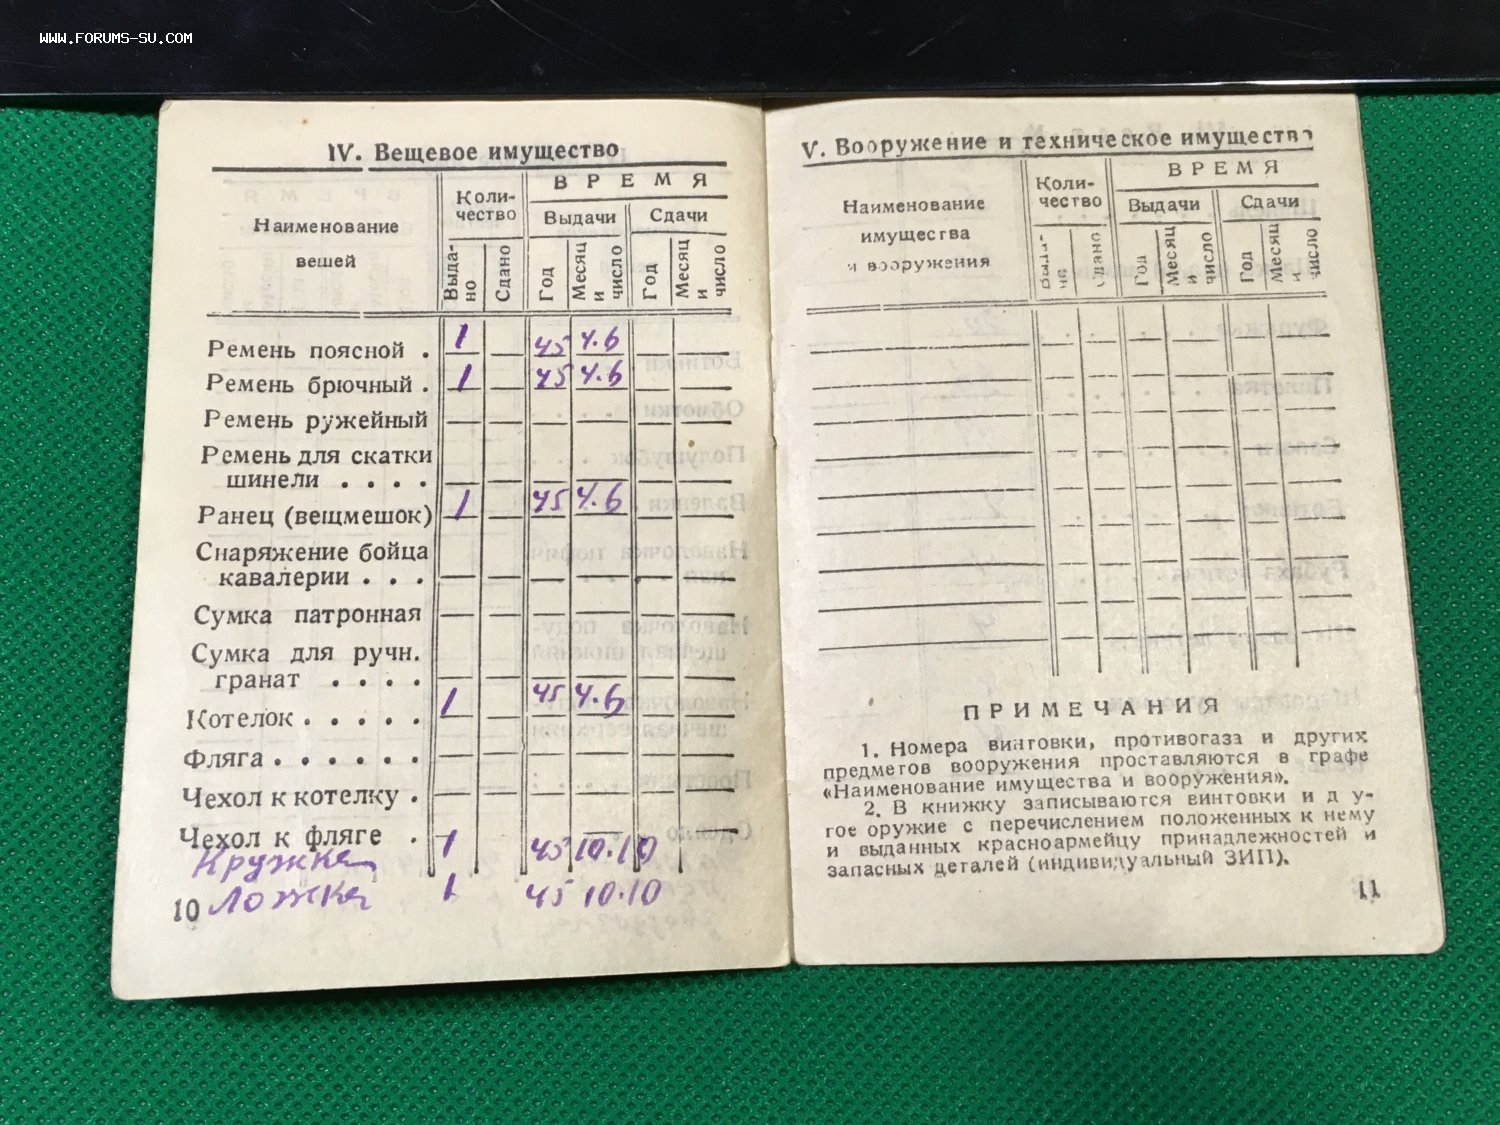 WWW.FORUMS-SU.COM
IV. Вещевое имущество
Наименование вещей
Коли-
чество
ВРЕМЯ
Выдачи
Сдачи
Выда-
но
Сдано
Год
Месяц
и
число
Год
Месяц
и
число
Ремень поясной . 1 45 4.6
Ремень брючный . 1 45 4.6
Ремень ружейный
Ремень для скатки
шинели . . . .
Ранец (вещмешок) 1 45 4.6
Снаряжение бойца
кавалерии . . .
Сумка патронная
Сумка для ручн.
гранат . . . .
Котелок . . . . . 1 45 4.6
Фляга . . . . . .
Чехол к котелку .
Чехол к фляге .
Кружка 1 45 10.10
Ложка 1 45 10.10
10
V. Вооружение и техническое имущество
Наименование
имущества
и вооружения
Коли-
чество
ВРЕМЯ
Выдачи
Сдачи
Выда-
но
Сдано
Год
Месяц
и
число
Год
Месяц
и
число
ПРИМЕЧАНИЯ
1. Номера винтовки, противогаза и других
предметов вооружения проставляются в графе
«Наименование имущества и вооружения».
2. В книжку записываются винтовки и д у-
гое оружие с перечислением положенных к нему
и выданных красноармейцу принадлежностей и
запасных деталей (индивидуальный ЗИП).
11